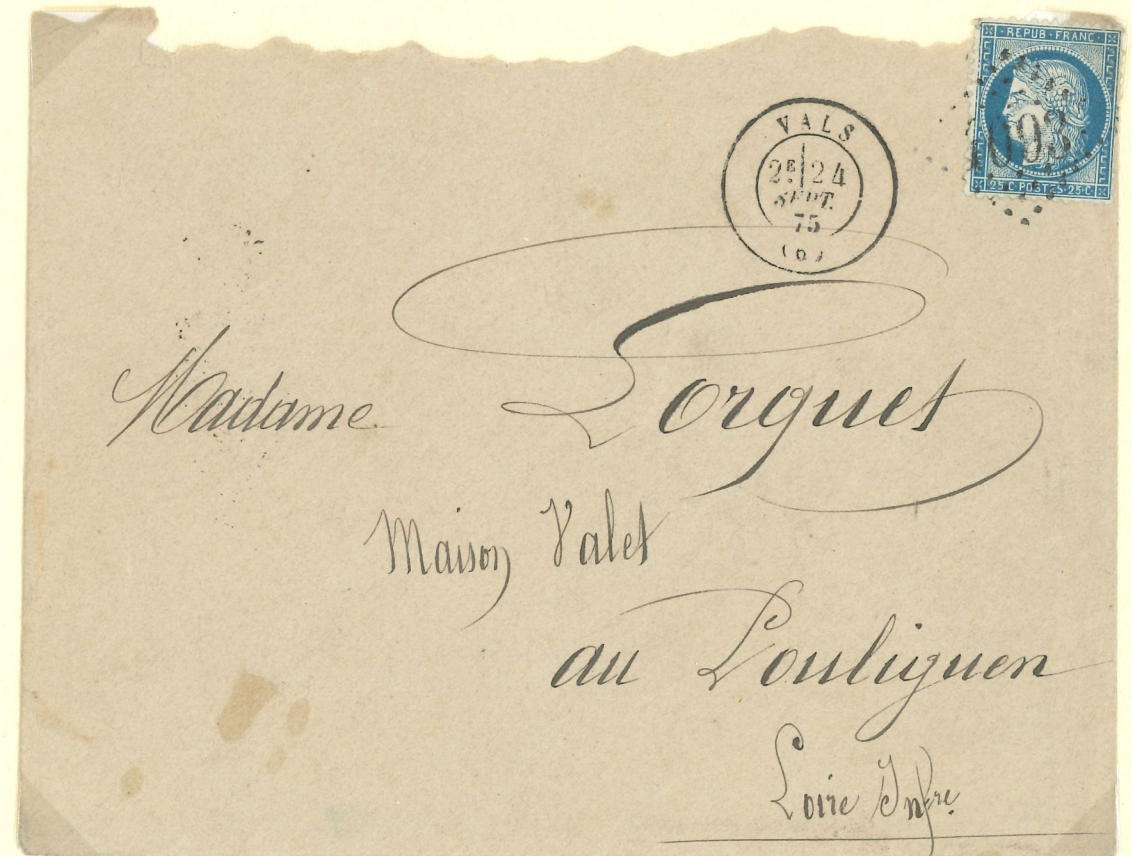 REPUB·FRANC
4093
25·C·POSTES·25·C
VALS
2E 24
SEPT.
75
(6)
Madame Lorquet
Maison Valet
au Pouliguen
Loire Infre